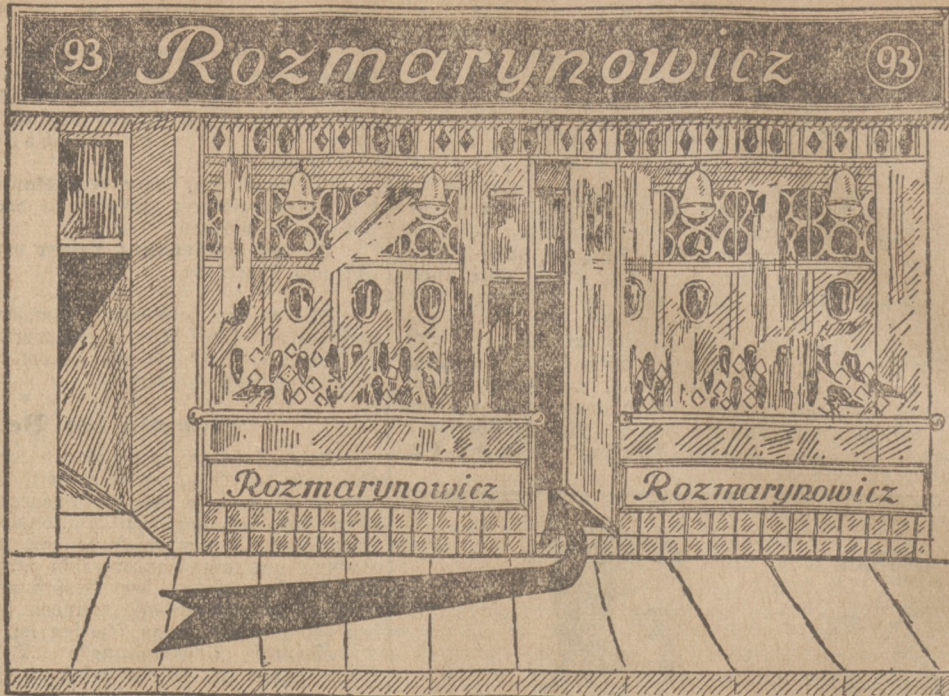 93 Rozmarynowicz 93
Rozmarynowicz
Rozmarynowicz